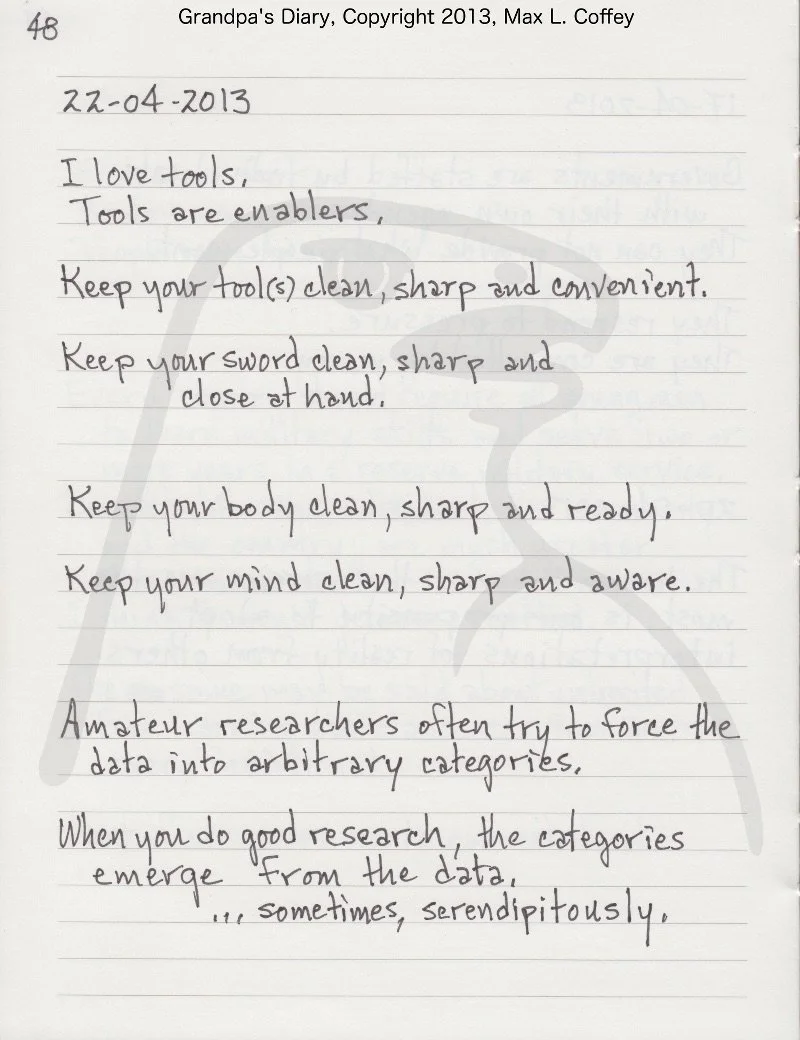 Grandpa's Diary, Copyright 2013, Max L. Coffey
48
22-04-2013
I love tools.
Tools are enablers.
Keep your tool(s) clean, sharp and convenient.
Keep your sword clean, sharp and
close at hand.
Keep your body clean, sharp and ready.
Keep your mind clean, sharp and aware.
Amateur researchers often try to force the
data into arbitrary categories.
When you do good research, the categories
emerge from the data.
... sometimes, serendipitously.